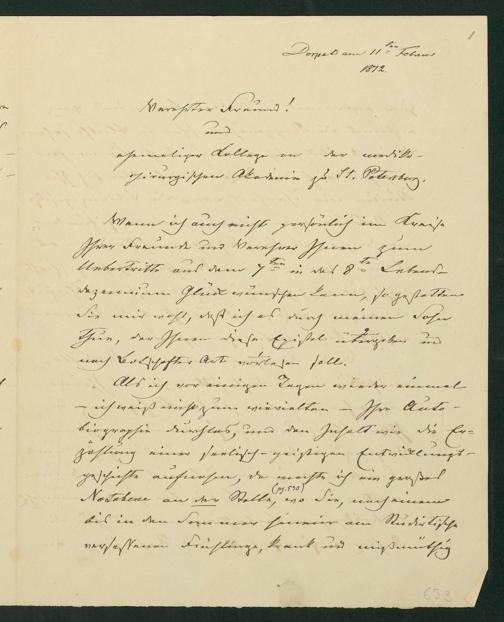 1
Dorpat am 11ten Februar
1872.
Verehrter Freund!
und
ehemaliger College an der medico-
chirurgischen Akademie zu St. Petersburg.
Wenn ich auch nicht persönlich im Kreise
Ihrer Freunde und Verehrer Ihnen zum
Uebertritte aus dem 7ten in das 8te Lebens-
dezennium Glück wünschen kann, so gestatten
Sie mir wohl, daß ich es durch meinen Sohn
thue, der Ihnen diese Epistel übergeben und
nach Botschafter Art vorlesen soll.
Als ich vor einigen Tagen wieder einmal
– ich weiß nicht zum wievielten – Ihre Auto-
biographie durchlas, und den Inhalt wie die Er-
zählung einer seelisch-geistigen Entwicklungs-
geschichte aufnahm, da machte ich ein großes
Notabene an der Stelle, wo Sie, nach einem
bis in den Sommer hinein am Studirtische
versessenen Frühlinge, krank und mißmüthig
653